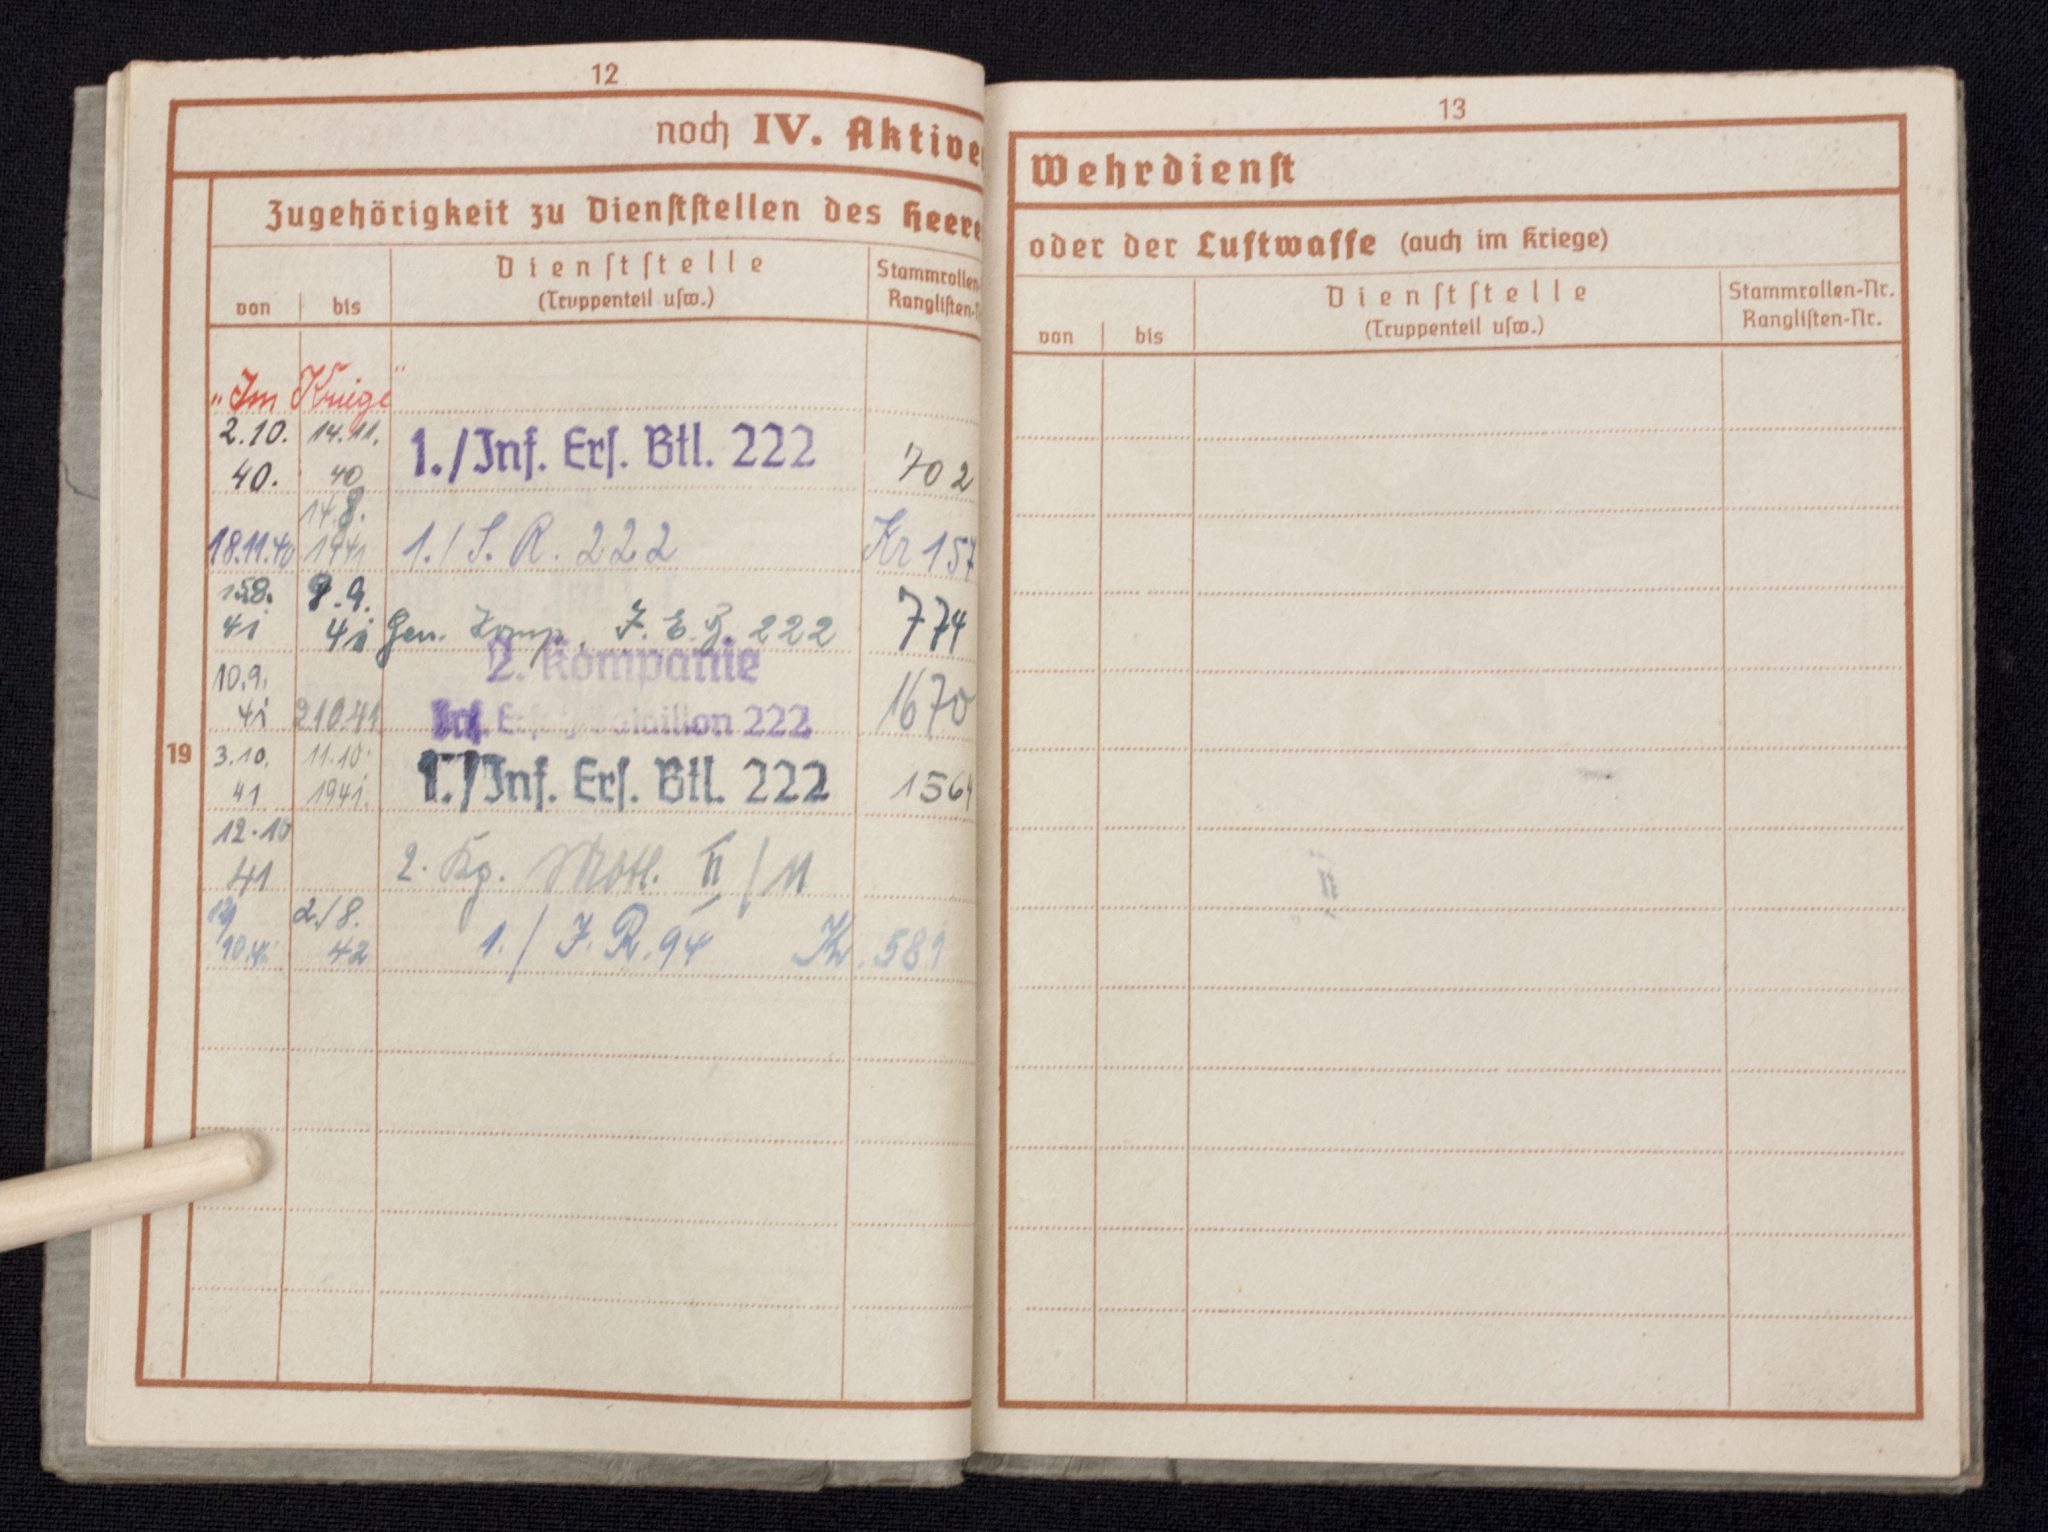 12
noch IV. Aktive
Zugehörigkeit zu Dienststellen des Heere
von
bis
Dienststelle
(Truppenteil usw.)
Stammrollen-
Ranglisten-N
"Im Kriege"
2.10. 14.11.
40. 40
1./Inf. Ers. Btl. 222
702
14.8.
18.11.40 1941
1./S. R. 222
Kr 157
15.8. 9.9.
41 41
Gen. Komp. J. E. B. 222
774
10.9.
41 2.10.41
2. Kompanie
Inf. Ers. Bataillon 222
1670
19
3.10. 11.10.
41 1941.
1./Inf. Ers. Btl. 222
1564
12.10
41
2. Kp. II/11
2./8.
10.41 42
1./J. R. 94
Kr. 589
13
Wehrdienst
oder der Luftwaffe (auch im Kriege)
von
bis
Dienststelle
(Truppenteil usw.)
Stammrollen-Nr.
Ranglisten-Nr.